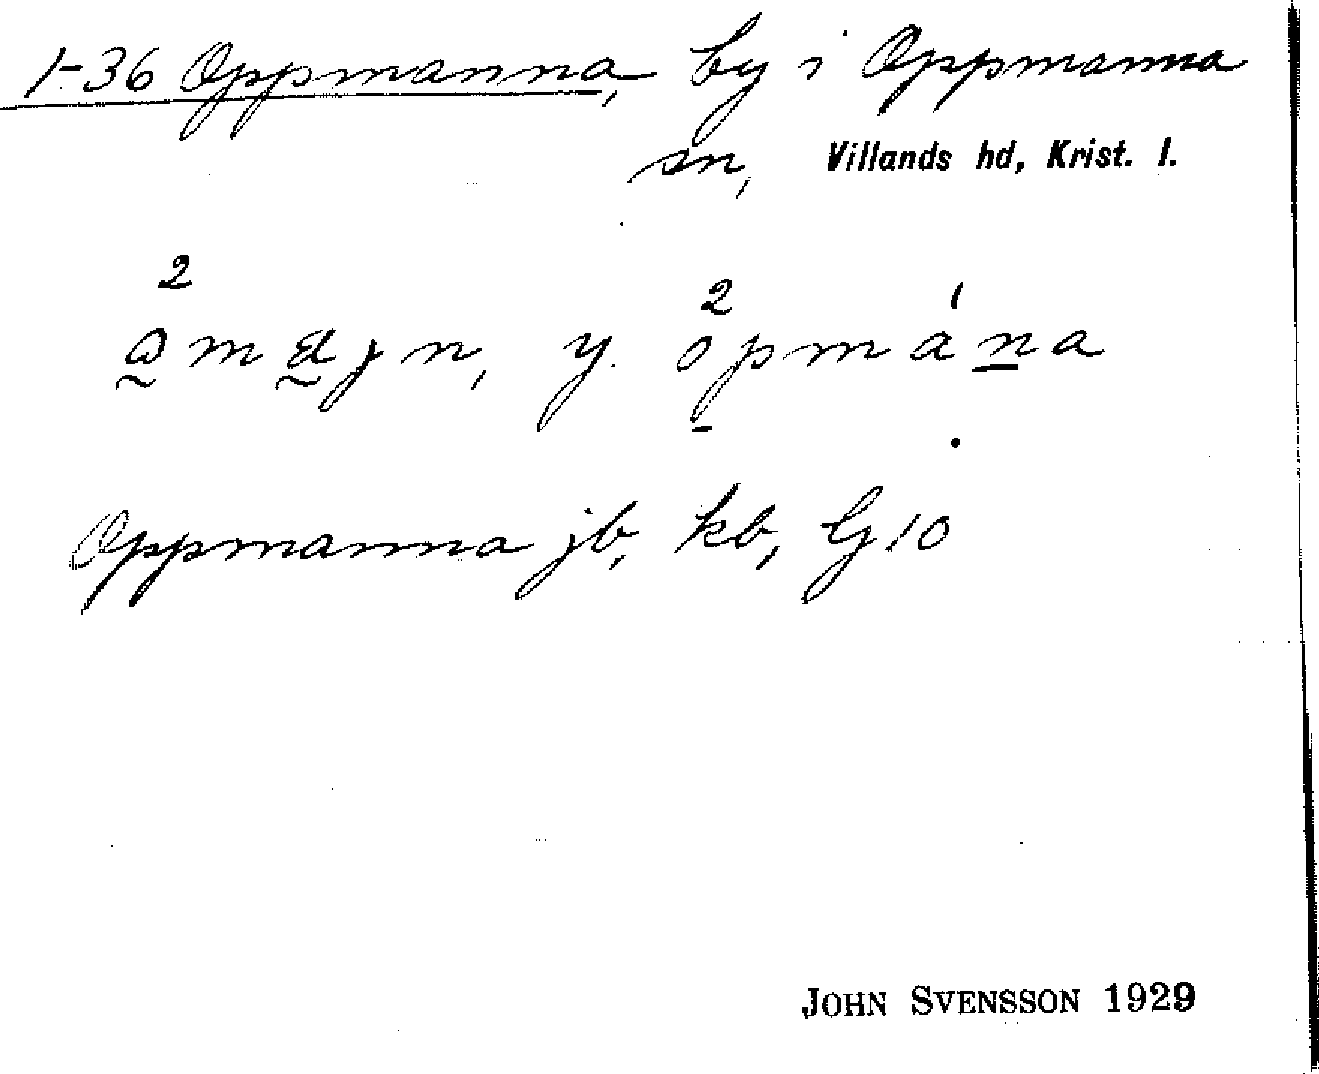 1-36 Oppmanna, by i Oppmanna
sn, Villands hd, Krist. l.
y. òpmána
Oppmanna jb, kb, Gj 10
JOHN SVENSSON 1929